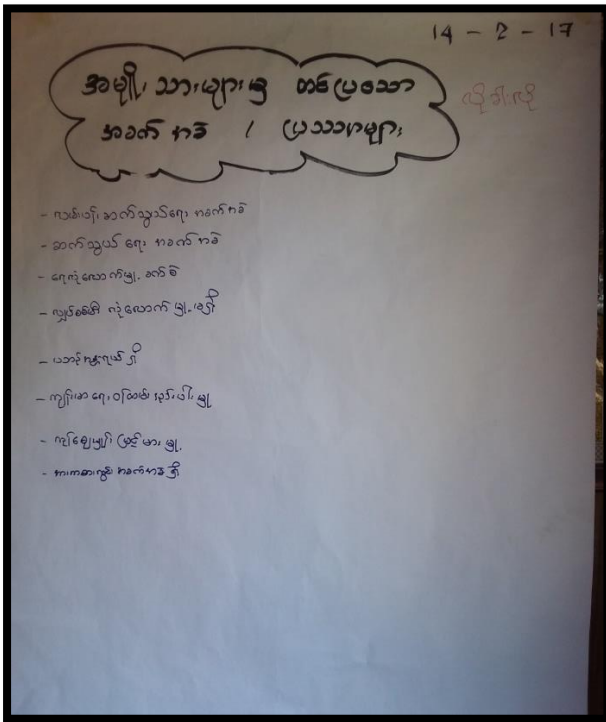 14 - 2 - 17
အမျိုးသားများမှ တင်ပြသော
အခက်အခဲ / ပြဿနာများ
- လမ်းပန်းဆက်သွယ်ရေး အခက်အခဲ
- ဆက်သွယ်ရေး အခက်အခဲ
- ရေလုံလောက်မှု့ ခက်ခဲ
- လျှပ်စစ်မီး လုံလောက်မှု့ မရှိ
- သဘာဝအန္တရာယ်ရှိ
- ကျန်းမာရေးဝန်ထမ်း
- ကုန်ဈေးနှုန်းမြင့်မားမှု့
- အခက်အခဲရှိ